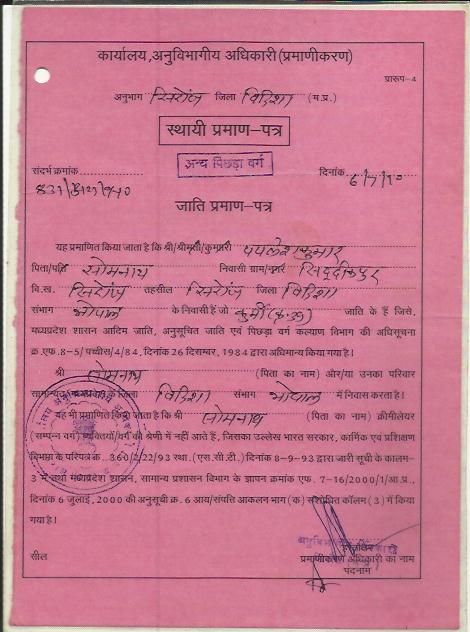 कार्यालय,अनुविभागीय अधिकारी(प्रमाणीकरण)
प्रारूप-4
अनुभाग सिरोंज जिला विदिशा (म.प्र.)
स्थायी प्रमाण-पत्र
अन्य पिछड़ा वर्ग
संदर्भ क्रमांक
दिनांक 6/7/10
जाति प्रमाण-पत्र
यह प्रमाणित किया जाता है कि श्री/श्रीमती/कुमारी
पिता/पति सोमनाथ निवासी ग्राम/नगर
वि.ख. सिरोंज तहसील सिरोंज जिला विदिशा
संभाग भोपाल के निवासी हैं जो कुर्मी जाति के हैं जिसे,
मध्यप्रदेश शासन आदिम जाति, अनुसूचित जाति एवं पिछड़ा वर्ग कल्याण विभाग की अधिसूचना
क्र.एफ.8-5/ पच्चीस/4/84, दिनांक 26 दिसम्बर, 1984 द्वारा अधिमान्य किया गया है।
श्री सोमनाथ (पिता का नाम) ओर/या उनका परिवार
सामान्यतः जिला विदिशा संभाग भोपाल में निवास करता है।
यह भी प्रमाणित किया जाता है कि श्री सोमनाथ (पिता का नाम) क्रीमीलेयर
(सम्पन्न वर्ग) व्यक्तियों/वर्ग की श्रेणी में नहीं आते हैं, जिसका उल्लेख भारत सरकार, कार्मिक एवं प्रशिक्षण
विभाग के परिपत्र क्र. 360/2/22/93 स्था.(एस.सी.टी.) दिनांक 8-9-93 द्वारा जारी सूची के कालम-
3 में तथा मध्यप्रदेश शासन, सामान्य प्रशासन विभाग के ज्ञापन क्रमांक एफ. 7-16/2000/1/आ.प्र.,
दिनांक 6 जुलाई, 2000 की अनुसूची क्र. 6 आय/संपत्ति आकलन भाग (क) संशोधित कॉलम (3) में किया
गया है।
सील
हस्ताक्षर
प्रमाणीकरण अधिकारी का नाम
पदनाम